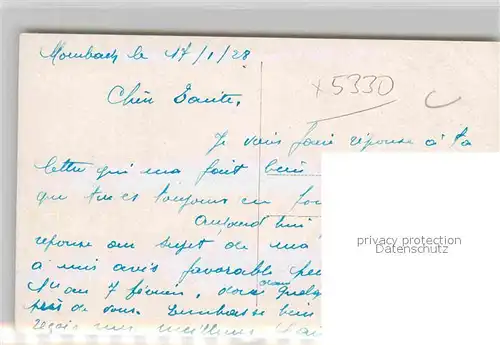 Mombach le 17/1/28
x5330
Chère Tante,
Je vais faire réponse à ta
lettre qui m'a fait bien
que tu es toujours en
Aujourd'hui
réponse au sujet de ma
à mis avis favorable
privacy protection
Datenschutz
1er au 7 février, donc dans quelq
près de vous. bien
reçois mes meilleurs